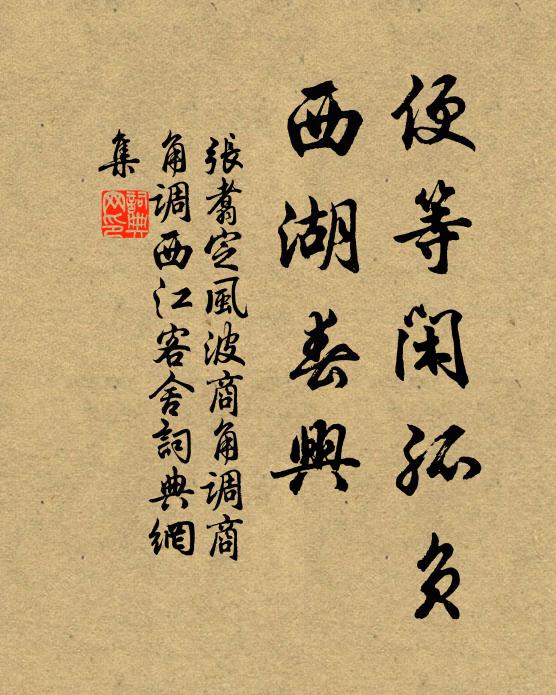 便等闲孤负
西湖春興
張翥定風波商角调商
角调西江客舍詞典網
集
詞典
网印